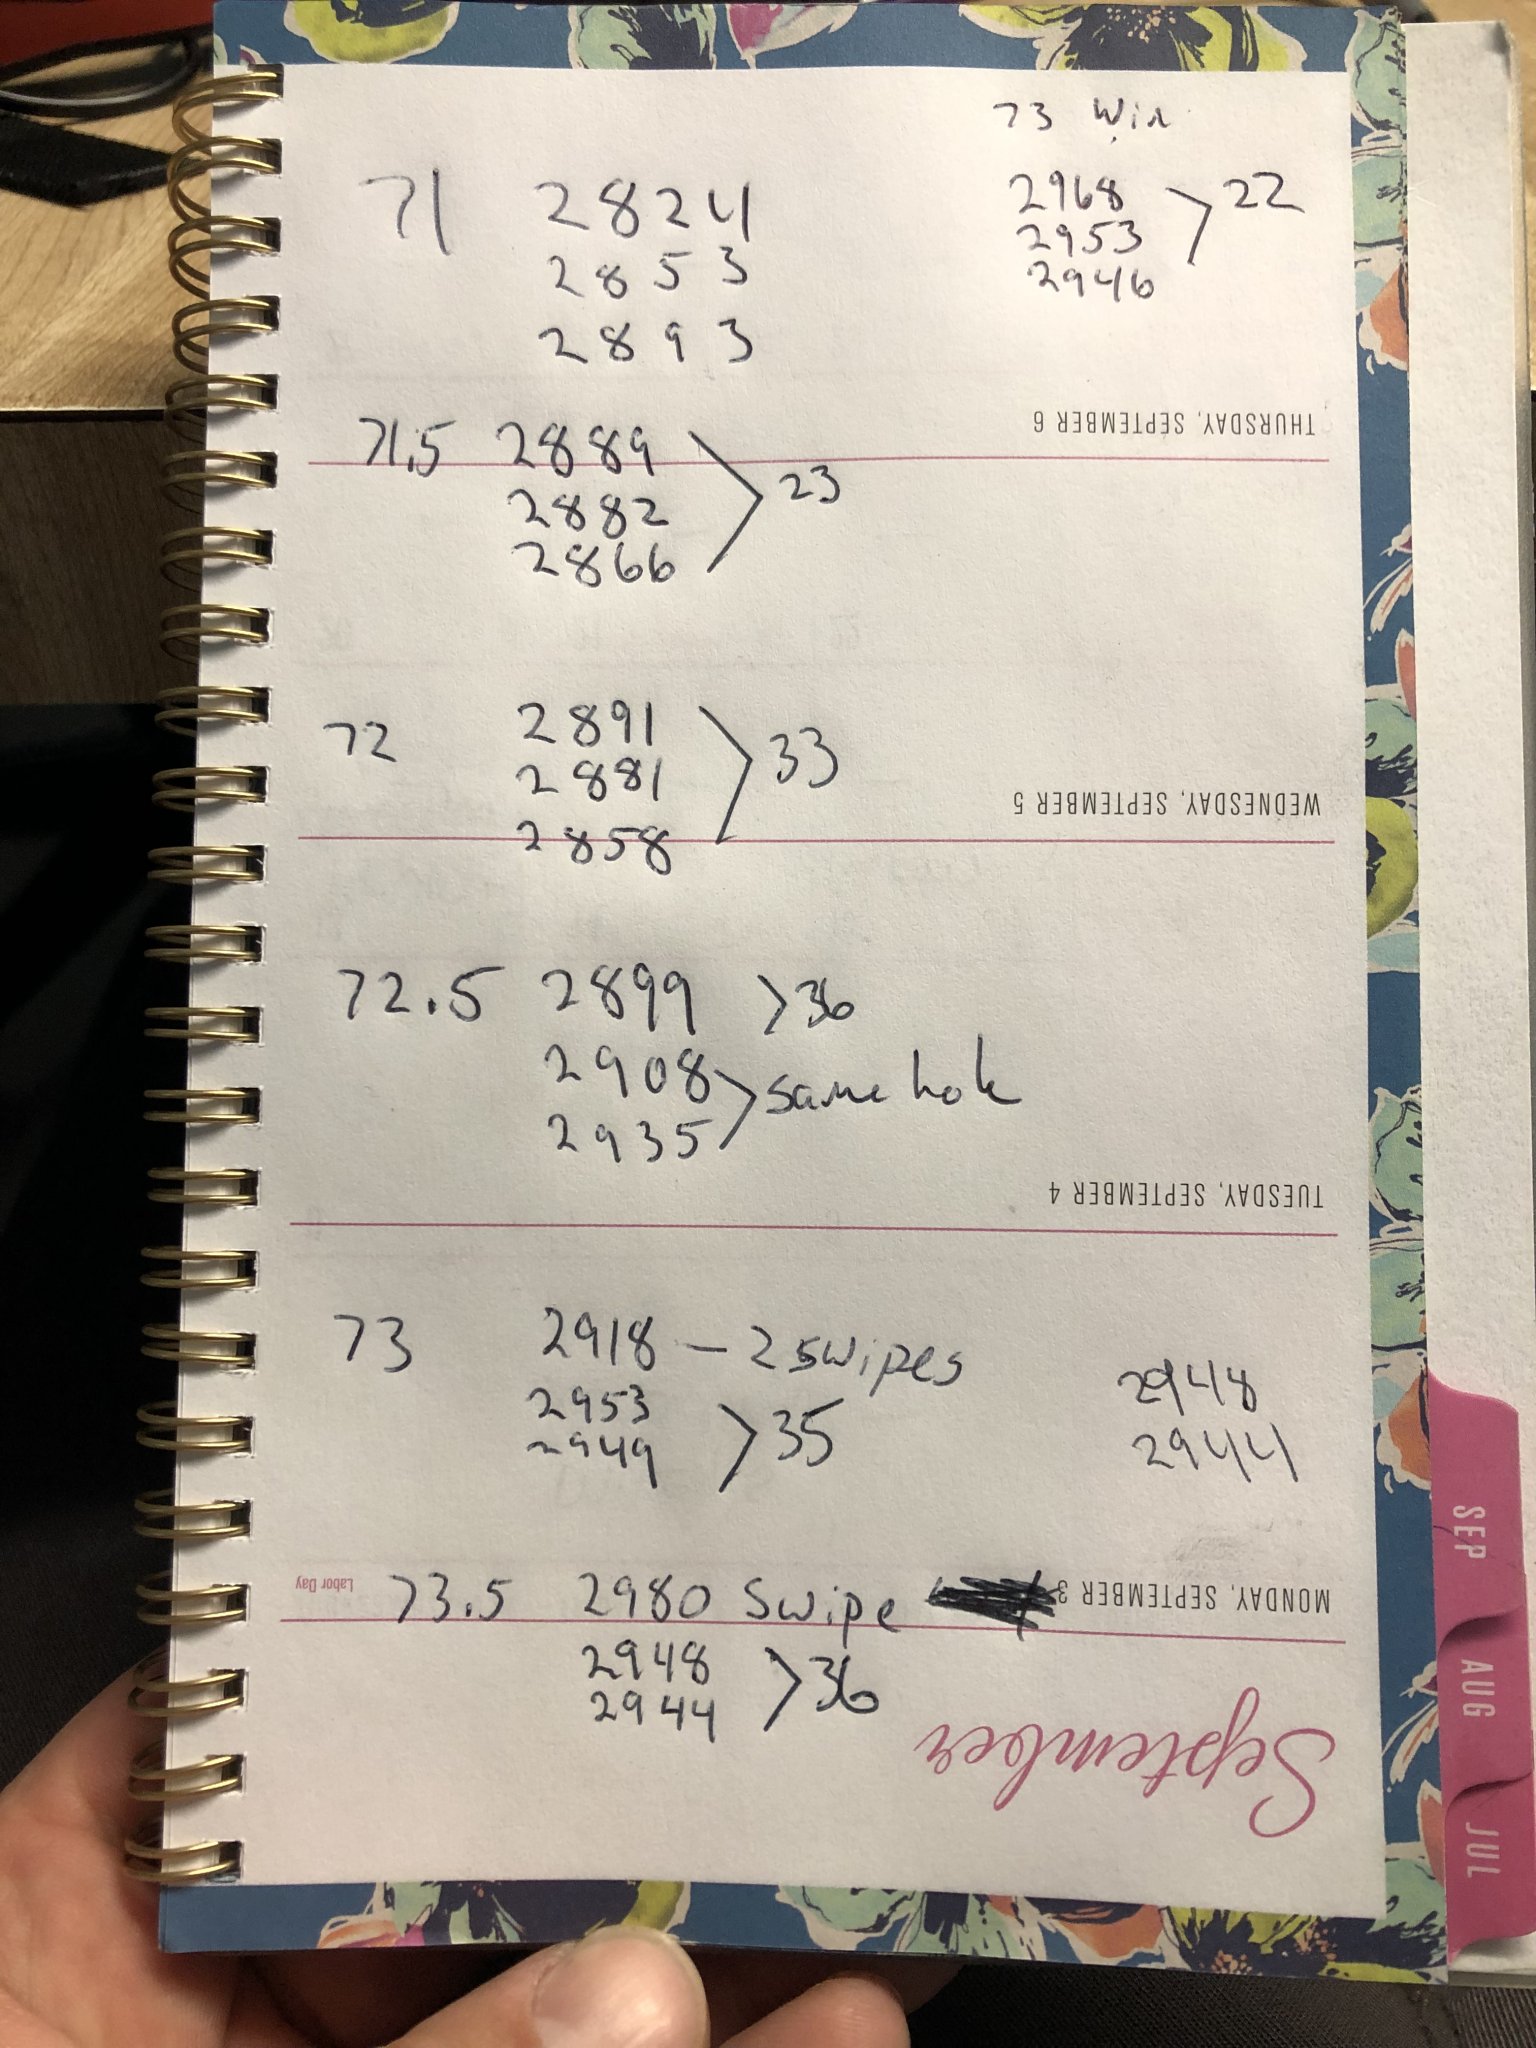 73 Win
71 2824
2853
2893
2968
2953 > 22
2946
THURSDAY, SEPTEMBER 6
71.5 2889
2882 > 23
2866
72 2891
2881 > 33
2858
WEDNESDAY, SEPTEMBER 5
72.5 2899 > 36
2908
2935 > same hole
TUESDAY, SEPTEMBER 4
73 2918 - 2 swipes
2953
2949 > 35
2948
2944
Labor Day
73.5 2980 Swipe
MONDAY, SEPTEMBER 3
2948
2944 > 36
September
SEP
AUG
JUL